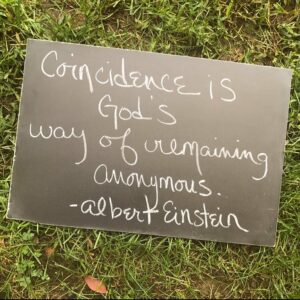 Coincidence is
God's
way of remaining
anonymous.
-albert Einstein